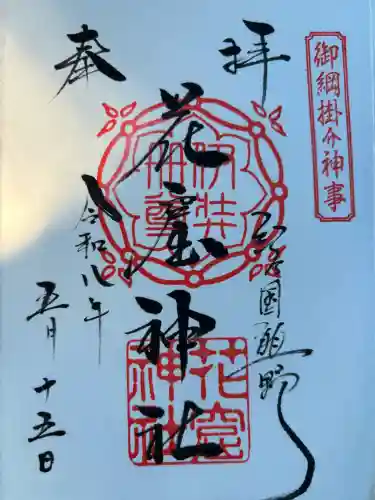 御綱掛け神事
奉拝
花窟神社
国熊野
令和八年
五月十五日
伊弉冊尊
花窟神社